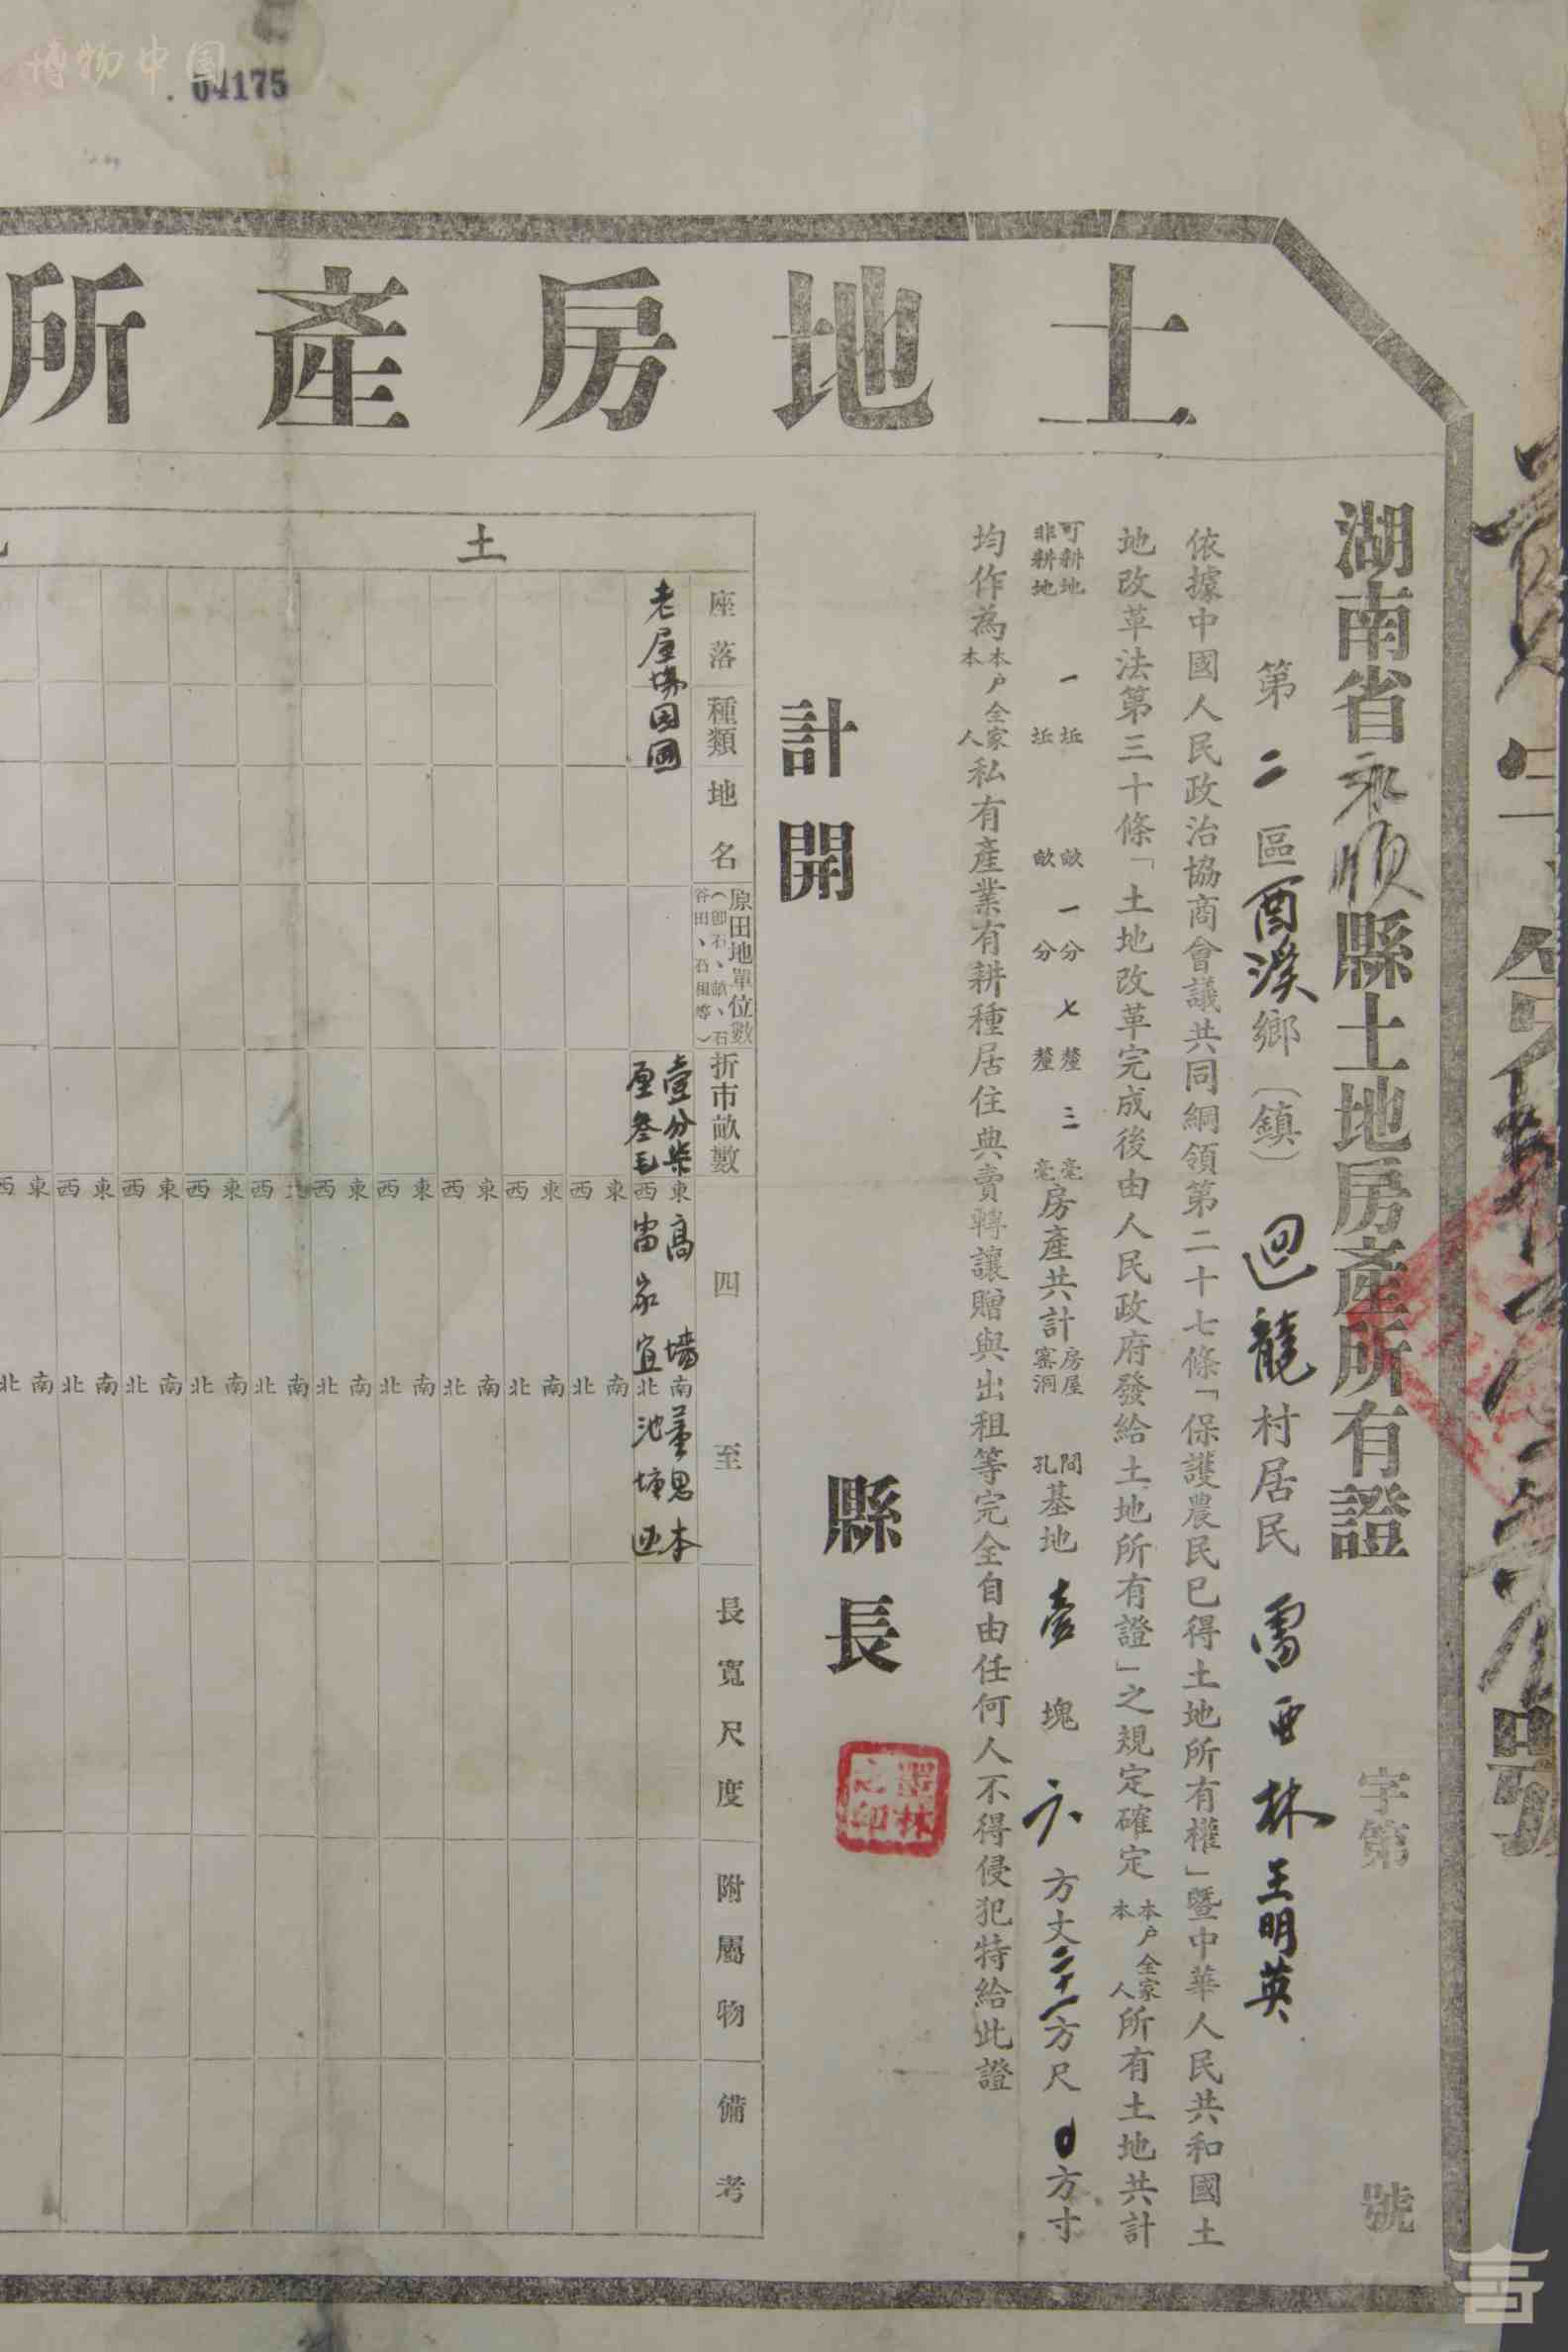 博物中国
04175
土地房產所
湖南省永順縣土地房產所有證
字第 號
第二區酉溪鄉（鎮）迴龍村居民 雷西林 王明英
依據中國人民政治協商會議共同綱領第二十七條「保護農民已得土地所有權」暨中華人民共和國土
地改革法第三十條「土地改革完成後由人民政府發給土地所有證」之規定確定本户全家本人所有土地共計
可耕地 一坵 畝一分七釐三毫
非耕地 坵 畝 分 釐 毫
房產共計房屋 間窰洞 孔基地壹塊六方丈二十一方尺0方寸
均作為本户全家本人私有產業有耕種居住典賣轉讓贈與出租等完全自由任何人不得侵犯特給此證
縣長
林之印
計開
土
座落
種類
地名
原田地單位數
折市畝數
四至
長寬尺度
附屬物
備考
老屋場园
壹分柒
厘叁毛
東高墙
南 本
西
北池塘
東 西 南 北
號